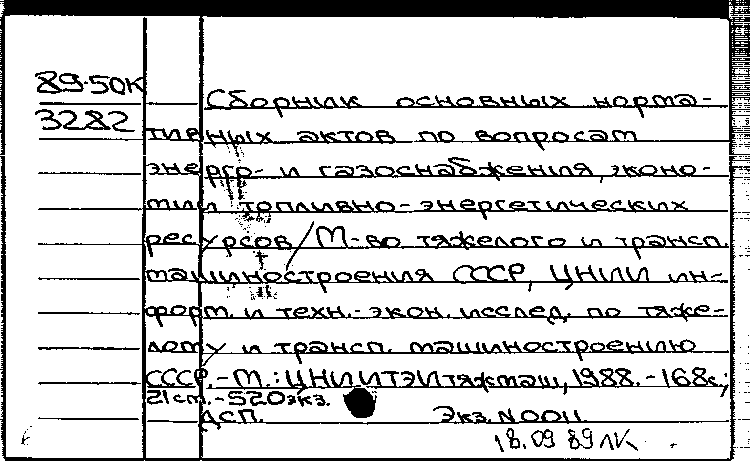 89-50к
3282
Сборник основных норма-
тивных актов по вопросам
энерго- и газоснабжения, эконо-
мии топливно-энергетических
ресурсов / М-во тяжелого и трансп.
машиностроения СССР, ЦНИИ ин-
форм. и техн.-экон. исслед. по тяже-
лому и трансп. машиностроению
СССР.-М.: ЦНИИТЭИтяжмаш, 1988.-168с.;
21 см.-520экз.
ДСП. Экз. N0011
18.09 89 ЛК